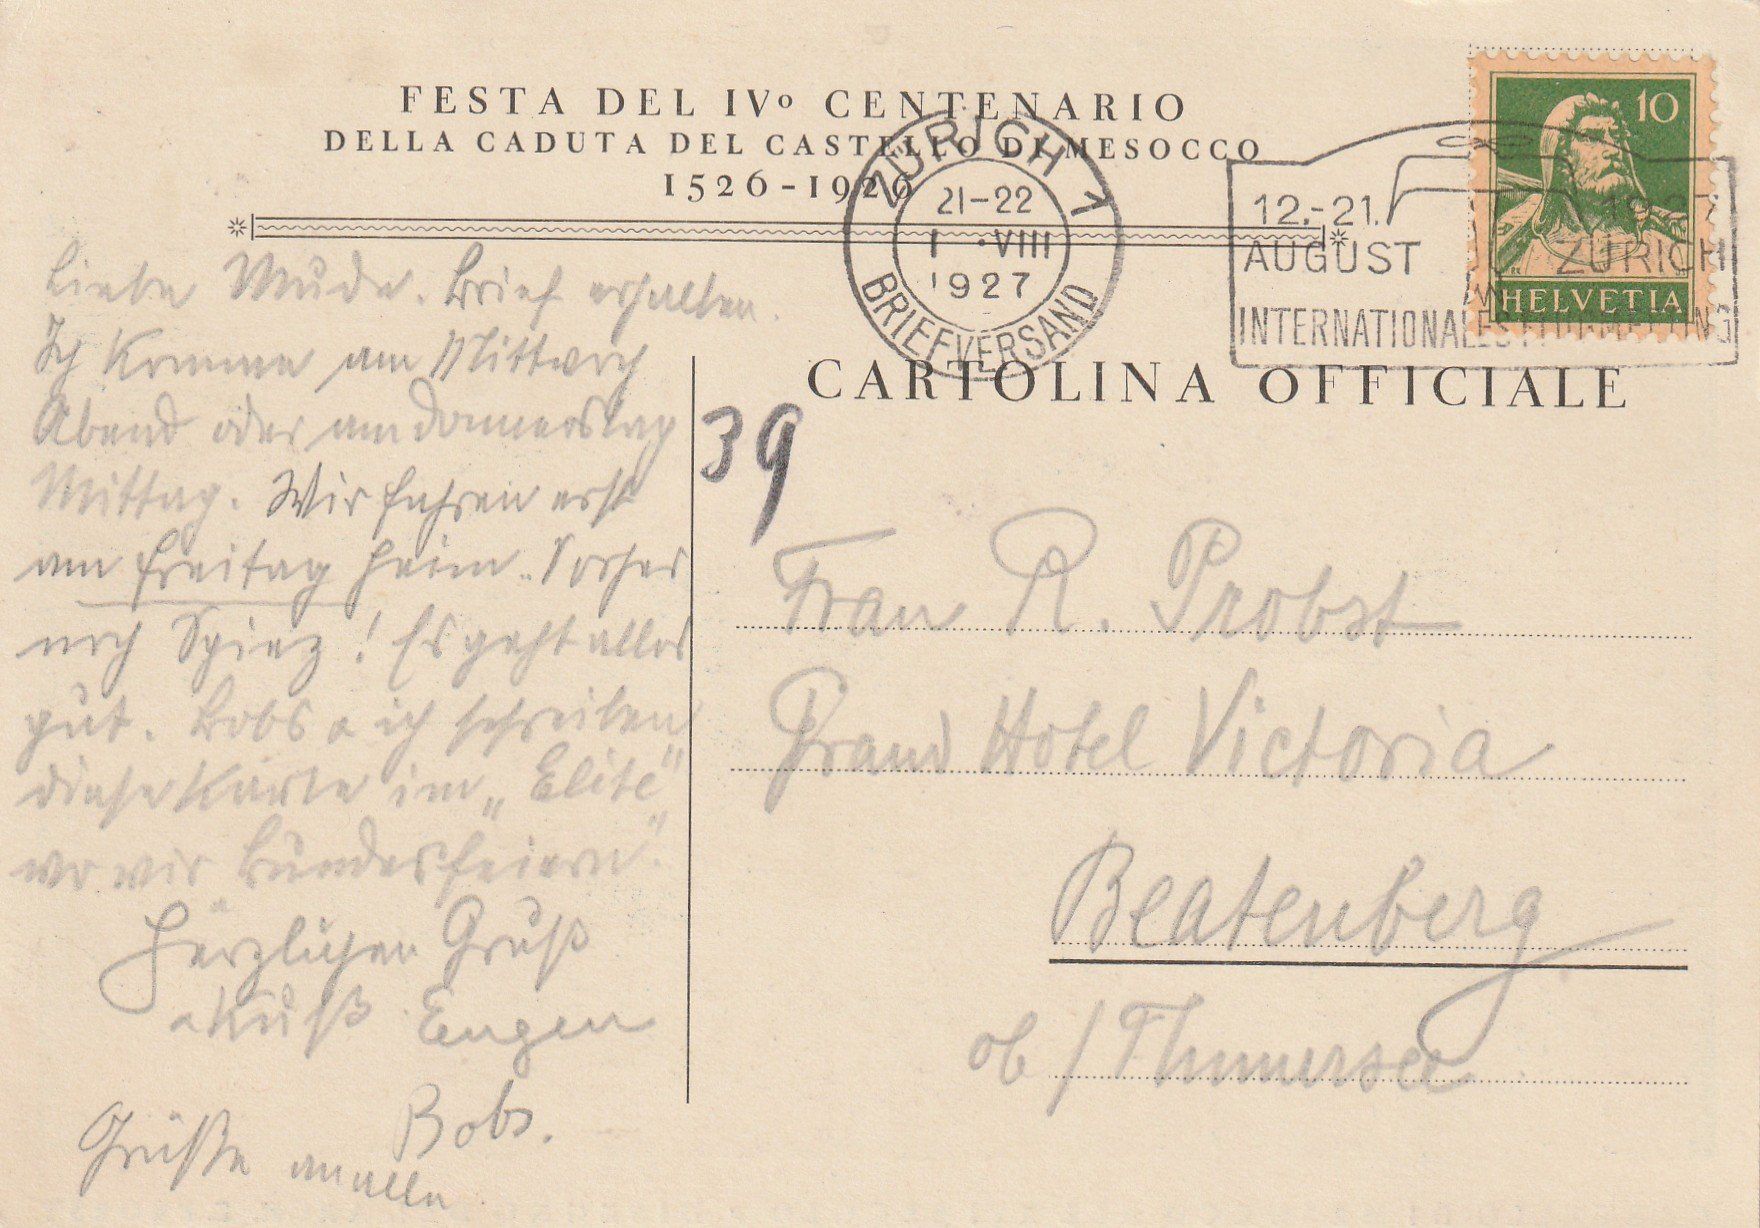 FESTA DEL IVº CENTENARIO
DELLA CADUTA DEL CASTELLO DI MESOCCO
1526-1926
ZÜRICH 1
21-22
1.VIII
1927
BRIEFVERSAND
12.-21.
AUGUST ZÜRICH
INTERNATIONALES
10
HELVETIA
CARTOLINA OFFICIALE
39
Liebe Mude. Brief erhalten.
Ich komme am Mittwoch
Abend oder am Donnerstag
Mittag. Wir fahren erst
am Freitag heim. Vorher
noch Spiez! Es geht alles
gut. Bobs & ich schreiben
diese Karte im „Elite"
wo wir Bundesfeiern".
Herzlichen Gruß
& Kuß Eugen
Bobs.
Grüße an alle
Frau R. Probst
Grand Hotel Victoria
Beatenberg
ob / Thunersee